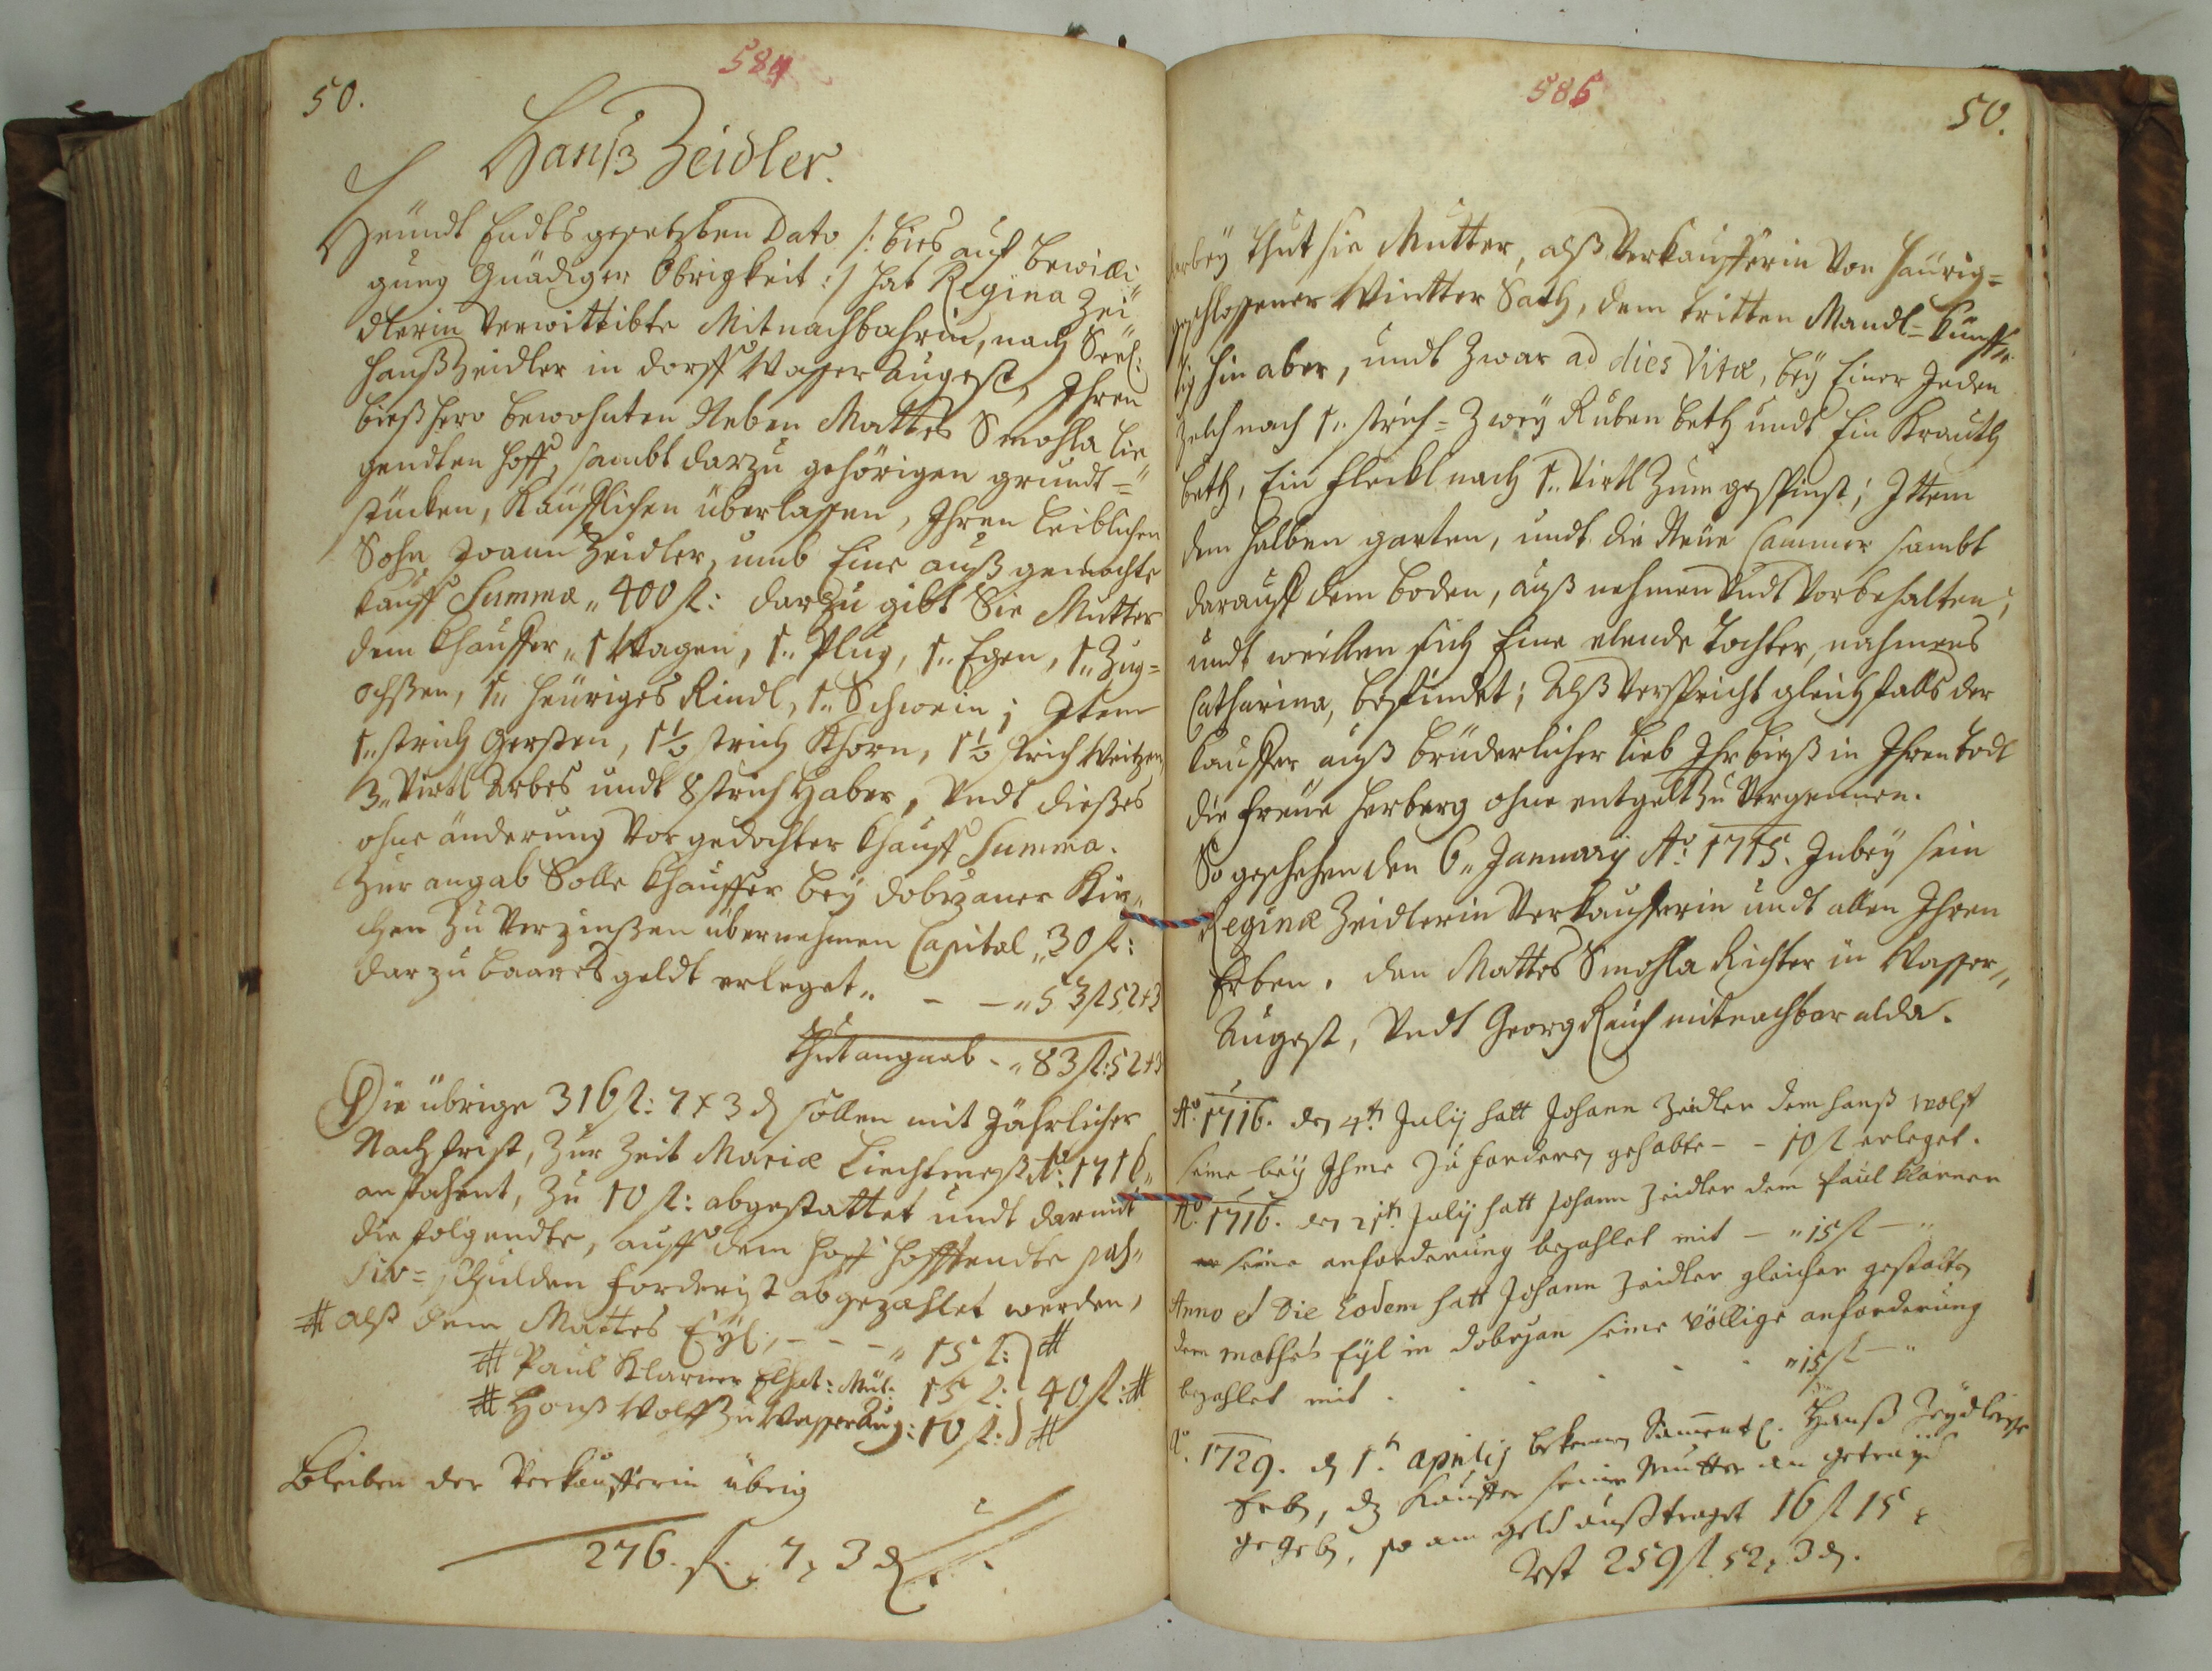 584
50.
Hanß Zeidler.
Heündt Endts gesetzten Dato /: bies auf bewilli„
gung Gnädiger Obrigkeit :/ hat Regina Zei„
dlerin verwittibte Mitnachbahrin, nach Seel:
Hanß Zeidler in dorff Wasser Augest, Ihren
bießhero bewohnten Neben Mattes Smohla lie„
gendten Hoff, sambt darzu gehörigen grundt=
stucken, Käufflichen überlassen, Ihren leiblichen
Sohn Joann Zeidler, umb Eine außgemachte
Kauff Summa „ 400 fl: darzu gibt Sie Mutter
dem Khauffer „ 1 Wagen, 1„ Plug, 1„ Egen, 1„ Zug=
ochßen, 1„ heüriges Rindl, 1„ Schwein; Item
1„ strich Gersten, 1½ strich Khorn, 1½ strich Weitzen,
3„ Virtl Arbes undt 8 strich Haber, Undt dießes
ohne änderung Vorgedochter Khauff Summa.
Zur angab Solle Khauffer bey dobrzaner Kir„
chen Zu Verzinßen übernehmen Capital „ 30 fl:
darzu baares geldt erleget „ - - „ 53 fl 52 x 3
Thut angaab - „ 83 fl: 52 x 3
Die übrige 316 fl: 7 x 3 d sollen mit Jährlicher
Nachfrist, Zur Zeit Mariæ Liechtmeß Aº: 1716„
anfahent, Zu 10 fl: abgestattet undt darmit
die folgendte, auff dem Hoff hafftendte pas„
siv= schulden forderist abgezahlet werden,
# alß dem Mattes Eyl, - - - „ 15 fl: #
# Paul Klarner 15 fl: 40 fl: #
# Hanß Wolff zu WasserAug: 10 fl: #
Bleiben der Verkaufferin übrig
276. fl. 7 x 3 d
585
50.
darbey thut sie Mutter, alß Verkaufferin Von heürig=
geschlossener Wintter Sath, dem tritten Mandl= künff„
tig hin aber, undt Zwar ad dies Vitæ, bey Einer Jeden
Zelch nach 1„ strich= Zwey Ruben beth undt Ein Krauth
beth, Ein fleckl nach 1„ Virtl Zum gespinst; Ittem
den halben garten, undt die Neüe Cammer sambt
darauff dem boden, auß nehmen Undt Vorbehalten;
undt weillen sich Eine elende Tochter, nahmens
Catharina, befindet; Alß Verspricht gleichfalls der
Kauffer auß brüderlicher lieb Ihr bieß in Ihren Todt
die freüe Herberg ohne entgelt zu Vergennen.
So geschehen den 6„ January Aº: 1715. Inbey sein
Reginæ Zeidlerin Verkaufferin undt allen Ihren
Erben. den Mattes Smohla Richter in Wasser„
Augest, Undt Georg Rauch mitnachbar alda.
Aº. 1716. den 4ᵗ. July hatt Johann Zeidler dem Hanß Wolf
seine bey Ihme Zu fordern gehabte - - 10 fl erleget.
Aº. 1716. den 21ᵗ. July hatt Johann Zeidler dem Paul Klarner
seine anforderung bezahlet mit - „ 15 fl - „
Anno et Die Eodem hatt Johann Zeidler gleicher gestalten
dem Mathes Eyl in dobrzan seine völlige anforderung
bezahlet mit . . . . „ 15 fl - „
Aº. 1729. d 1ᵗ. Aprilis bekennen Samentl. Hanß Zeydlerische
Erben, dz Kauffer seiner Mutter an getrayd
gegeben, so am geld außtraget 16 fl 15 x
Rest 259 fl 52 x 3 d.